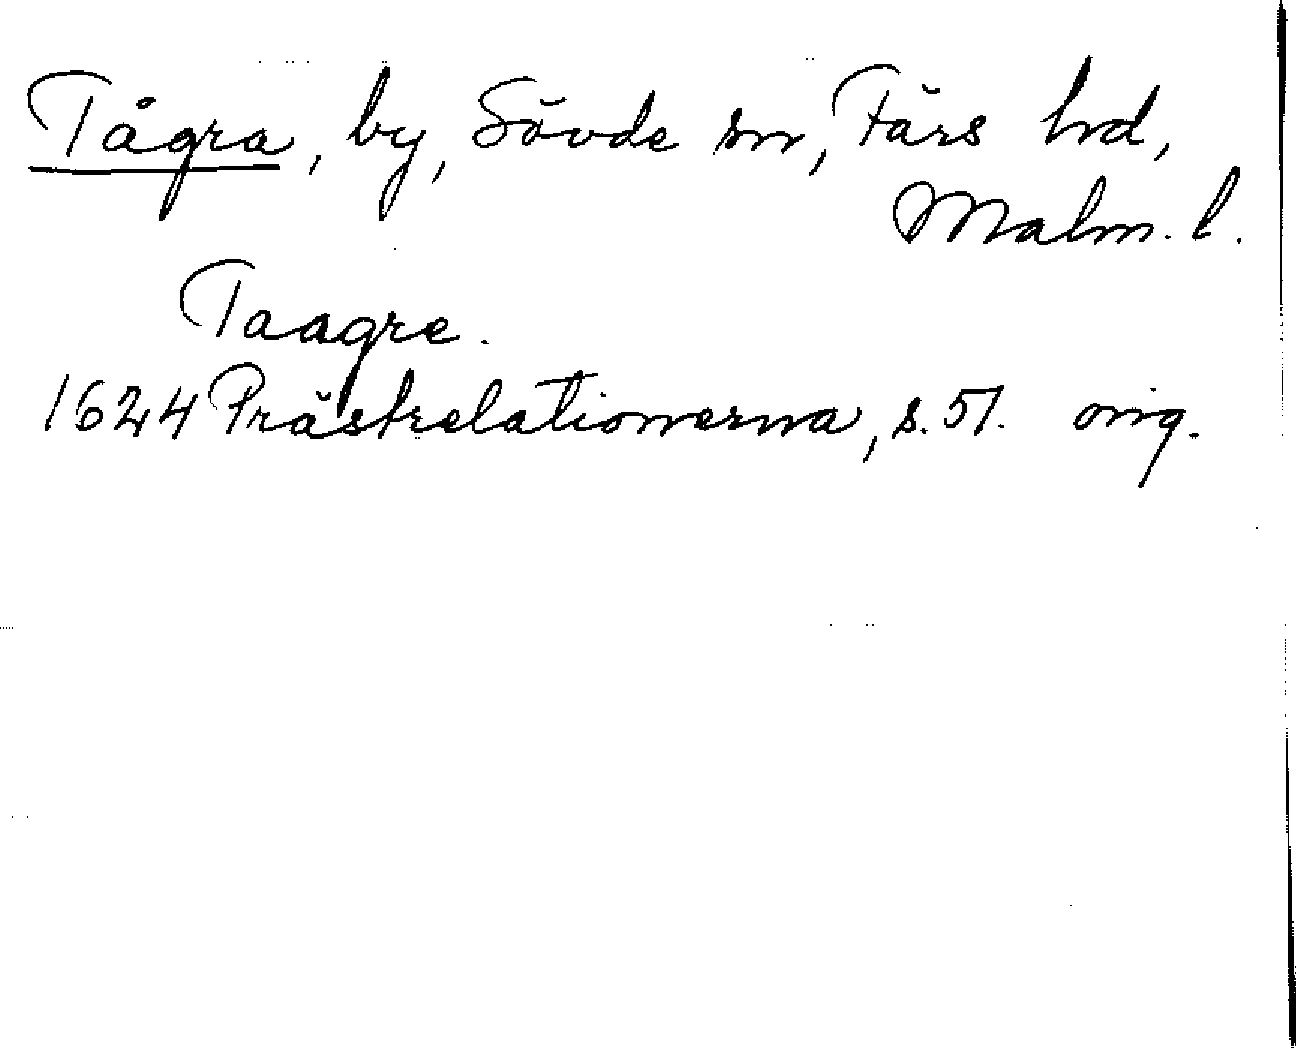 Tågra, by, Sövde sn, Färs hd,
Malm. l.
Taagre.
1624 Prästrelationerna, s. 51. orig.